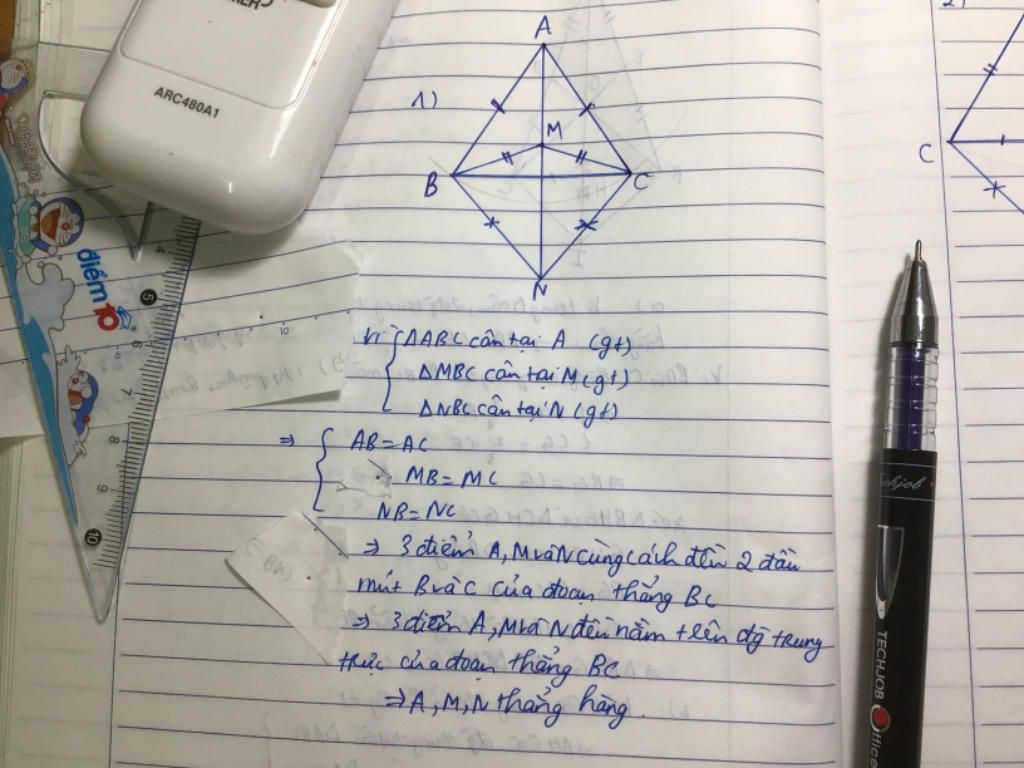 ARC480A1
điểm 10
4
5
6
7
8
9
10
10
2)
1)
A
M
B
C
N
C
Vì ΔABC cân tại A (gt)
ΔMBC cân tại M (gt)
ΔNBC cân tại N (gt)
⇒ AB = AC
MB = MC
NB = NC
⇒ 3 điểm A, M và N cùng cách đều 2 đầu
mút B và C của đoạn thẳng BC
⇒ 3 điểm A, M và N đều nằm trên đg trung
trực của đoạn thẳng BC
⇒ A, M, N thẳng hàng.
TECHJOB Office